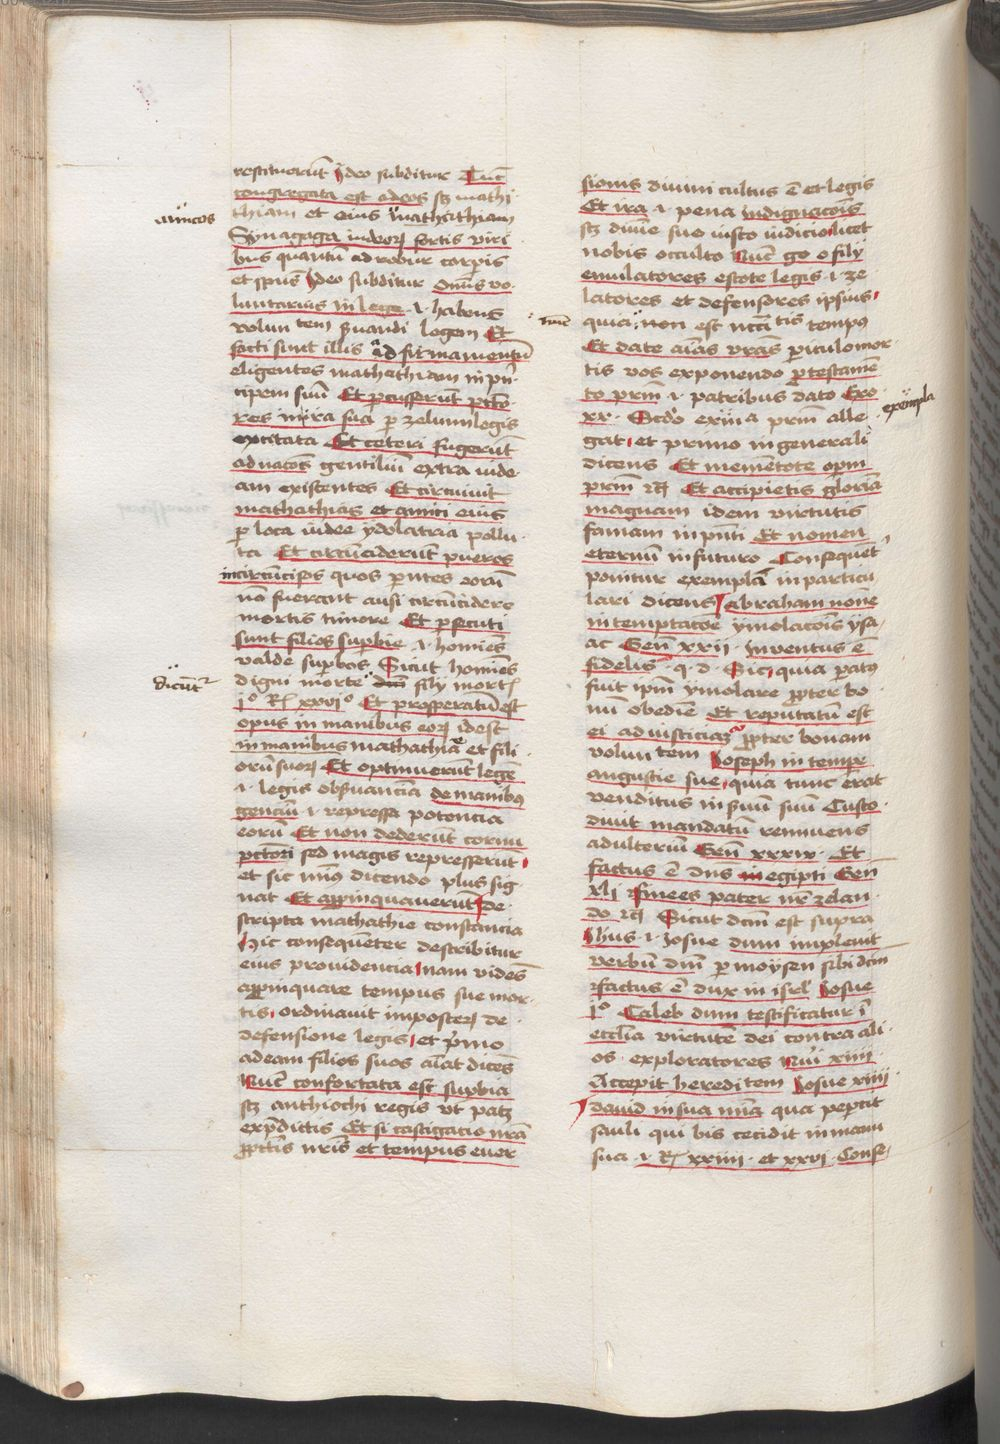 restituerūt Ideo subditur Tūc
congregata est adeos scz mathi
thiam et eius mathathiam
amicos
Synagoga iudeoꝝ fortis viri
bus quantū ad robur corpis
et spūs Ideo subditur Omnis vo
luntarius in lege .i. habens
volun tem suandi legem Et
facti sunt illis ad firmamentū
eligentes mathathiam in pn
cipem suū Et pcusserūt pctō
res in ira sua p zelum legis
excitata Et ceteri fugerūt
ad nacōes gentiliū extra iude
am existentes Et circuiuit
mathathias et amici eius
p loca iudee ydolatria pollu
ta Et circūciderūt pueros
incircūcisos quos pentes eorū
nō fuerant ausi circūcidere
mortis timore Et psecuti
sunt filios supbie .i. homies
valde supbos Sicut homies
digni morte filij mort
dicunt
jº Rº xxvjº Et prosperatū est
opus in manibus eoꝝ idest
in manibus mathathie et fili
orū suoꝝ Et optinuerūt legē
.i. legis obsuancia de manibus
genciū .i. repressa potencia
eorū Et non dederūt cornu
pctori sed magis represserūt
et sic min9 dicendo plus sig
nat Et appinquauerūt de
scripta mathathie constancia
Hic consequēter describitur
eius prouidencia nam vidēs
appinquare tempus sue mor
tis ordinauit imposteꝝ de
defensione legis et pmo
ad eam filios suos aiat dicēs
Nūc confortata est supbia
scz anthiochi regis vt patz
expdictis Et si castigatio nrā
pctīs nrīs et tempus euer
sionis diuini cultus ē et legis
Et ira .i. pena indignacōis
scz diuie sue iusto iudicio licet
nobis occulto Nūc go o filij
emulatores estote legis .i. ze
latores et defensores ipsius
quia non est tis tempus
nunc
Et date aīas vrās piculo mor
tis vos exponendo p testamē
to prm .i. patribus dato Exo
xx. Scdo exempla prm alle
exempla
gat et primo in generali
dicens Et mementote opm
prm Et accipietis gloriā
magnam idem virtutis
famam in pnti Et nomen
eternū in futuro Consequēt
ponitur exempla in particu
lari dicens Abraham nōne
in temptacōe ymolacōis ysa
ac Genꝰ xxij. Inuentus ē
fidelis .q.d. Sic quia patus
fuit ipm ymolare ppter bo
nū obedie Et reputatū est
ei ad iusticiaz ppter bonam
volun tem Joseph in tempe
angustie sue quia tunc erat
venditus in suū suū Custo
diuit mandatū renuens
adulteriū Genꝰ xxxix. Et
factus ē dns egipti Genꝰ
xli Finees pater nr zelan
do Sicut dcm est supra
Ihus .i. Josue dum impleuit
verbū dni p moysen sibi dcm
factus ē dux in isrl Josue
jº Caleb dum testificatur ī
ecclia virtutē dei contra ali
os exploratores xiiij
Accepit heredi tem Josue xiiij
dauid in sua mīa qua pepcit
sauli qui bis cecidit in manu
sua .i. Rº xxiiij. et xxvj. Conse